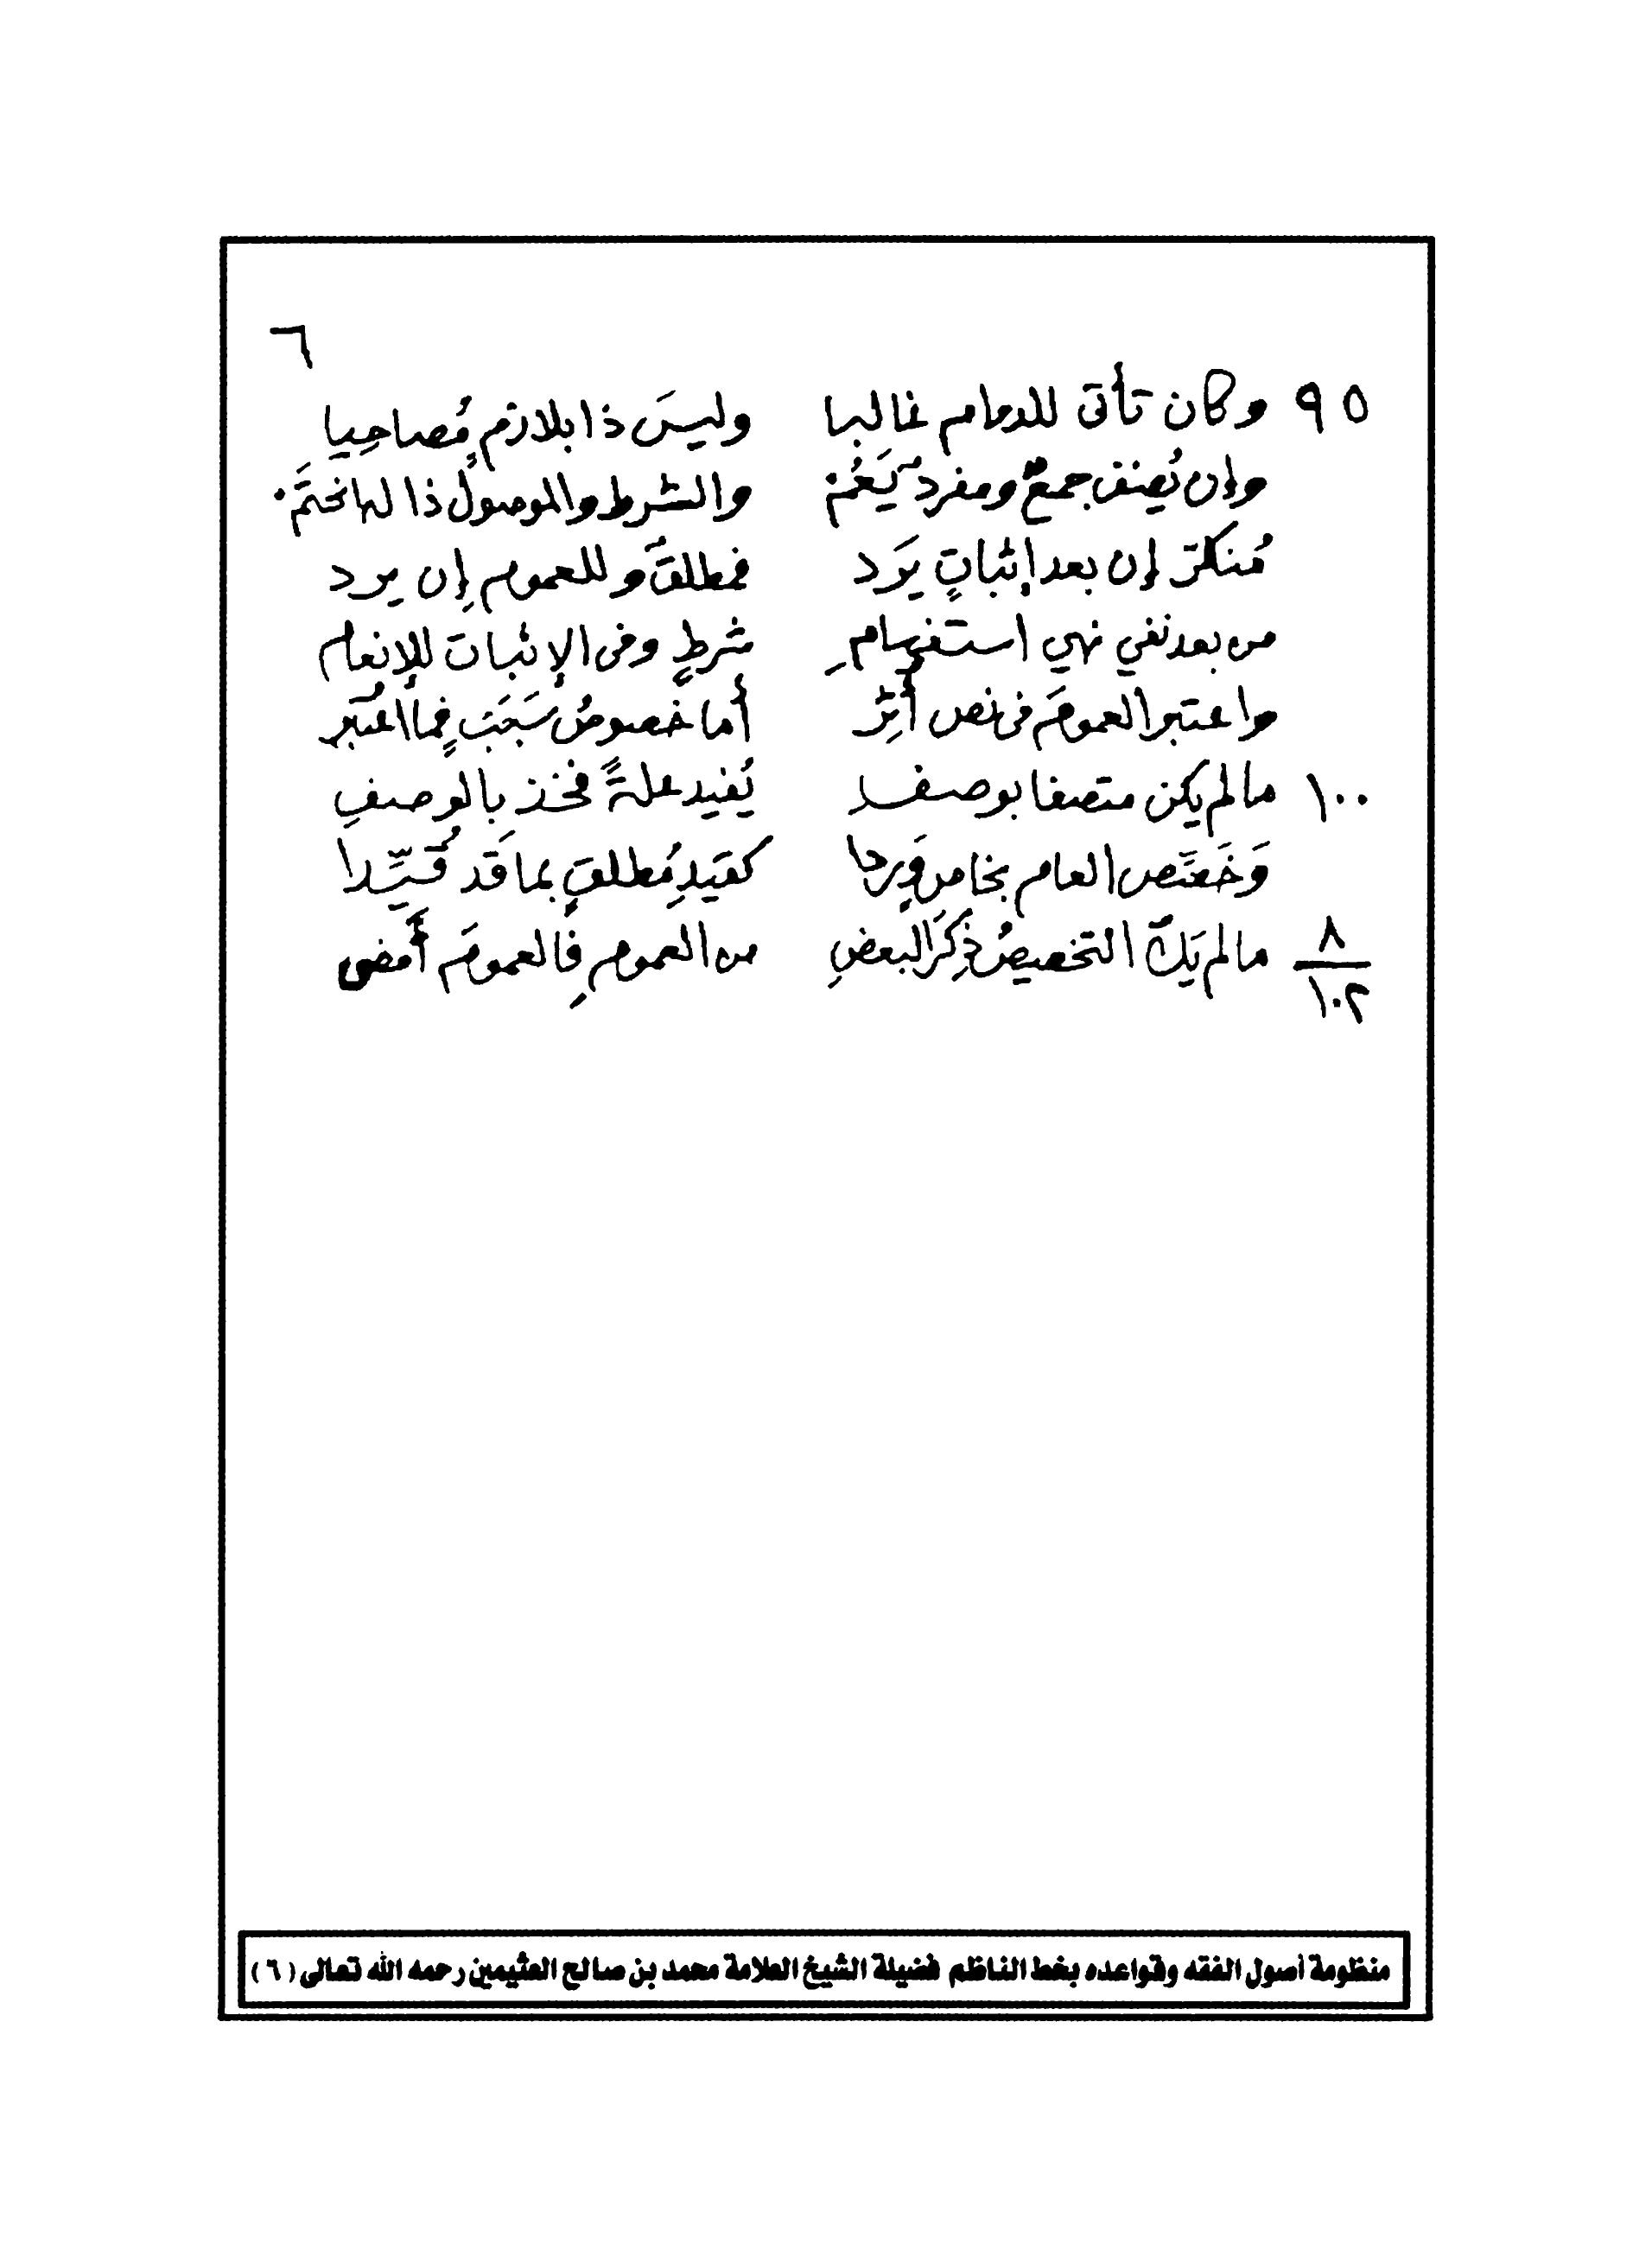 ٦
٩٥ وكان تأتى للدوام غالبا وليسَ ذا بلازمٍ مُصاحِبا
وإن يُضف جمعٌ ومفردٌ يَعُمْ والشرط والموصولُ ذا لها انحتَمْ
مُنكرٌ إن بعد إثباتٍ يَرد فمطلقٌ وللعمومِ إن يرد
من بعد نفي نهي استفهامِ شرطٍ وفى الإثبات للإنعام
واعتبر العمومَ فى نص أُثِرْ أما خصوصُ سَبَبٍ فما اعتُبِر
١٠٠ ما لم يكن متصفا بوصفِ يُفيد علةً فخذ بالوصفِ
وَخَصِّص العام بخاص وَرَدا كقيدِ مُطلقٍ بما قَد قُيِّدا
٨ ما لم يَكُ التخصيصُ ذِكرَ البعضِ من العمومِ فالعمومَ أَمضى
١٠٢
منظومة أصول الفقه وقواعده بخط الناظم فضيلة الشيخ العلامة محمد بن صالح العثيمين رحمه الله تعالى (٦)